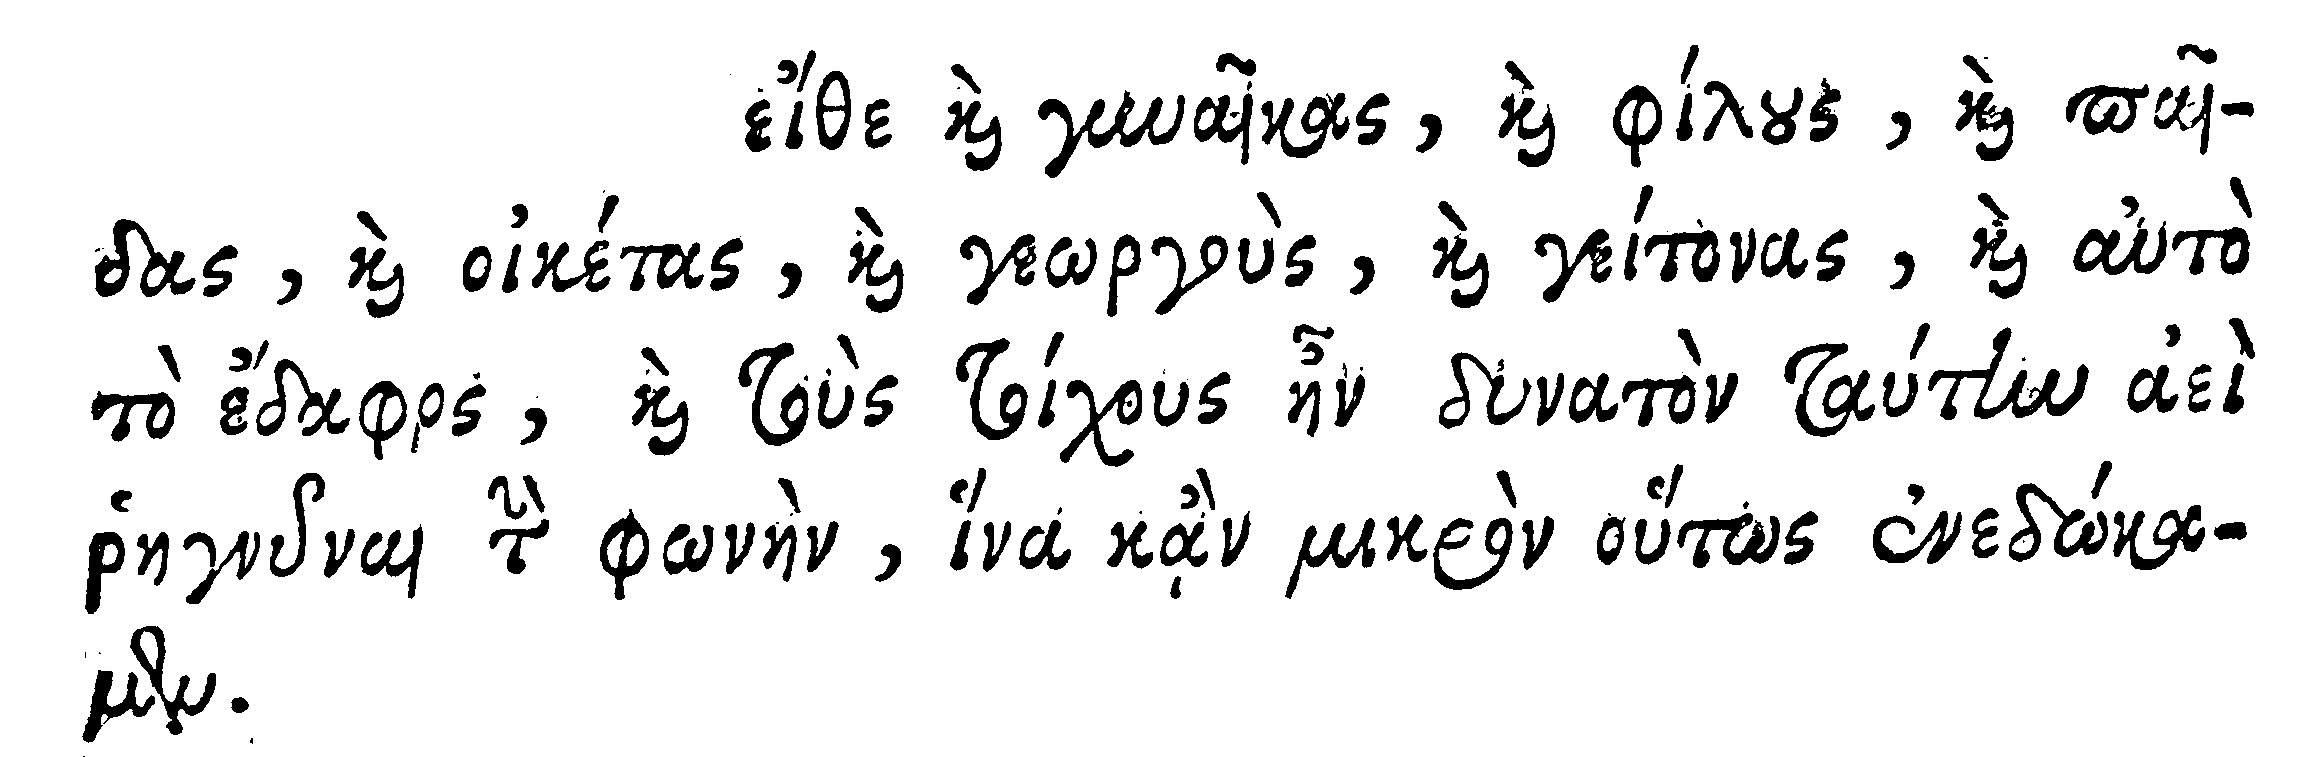 εἴθε καὶ γυναῖκας, καὶ φίλους, καὶ παῖ-
δας, καὶ οἰκέτας, καὶ γεωργοὺς, καὶ γείτονας, καὶ αὐτὸ
τὸ ἔδαφος, καὶ τοὺς τοίχους ἦν δυνατὸν ταύτην ἀεὶ
ῥηγνύναι τὴν φωνὴν, ἵνα κᾂν μικρὸν οὕτως ἐνεδώκα-
μεν.